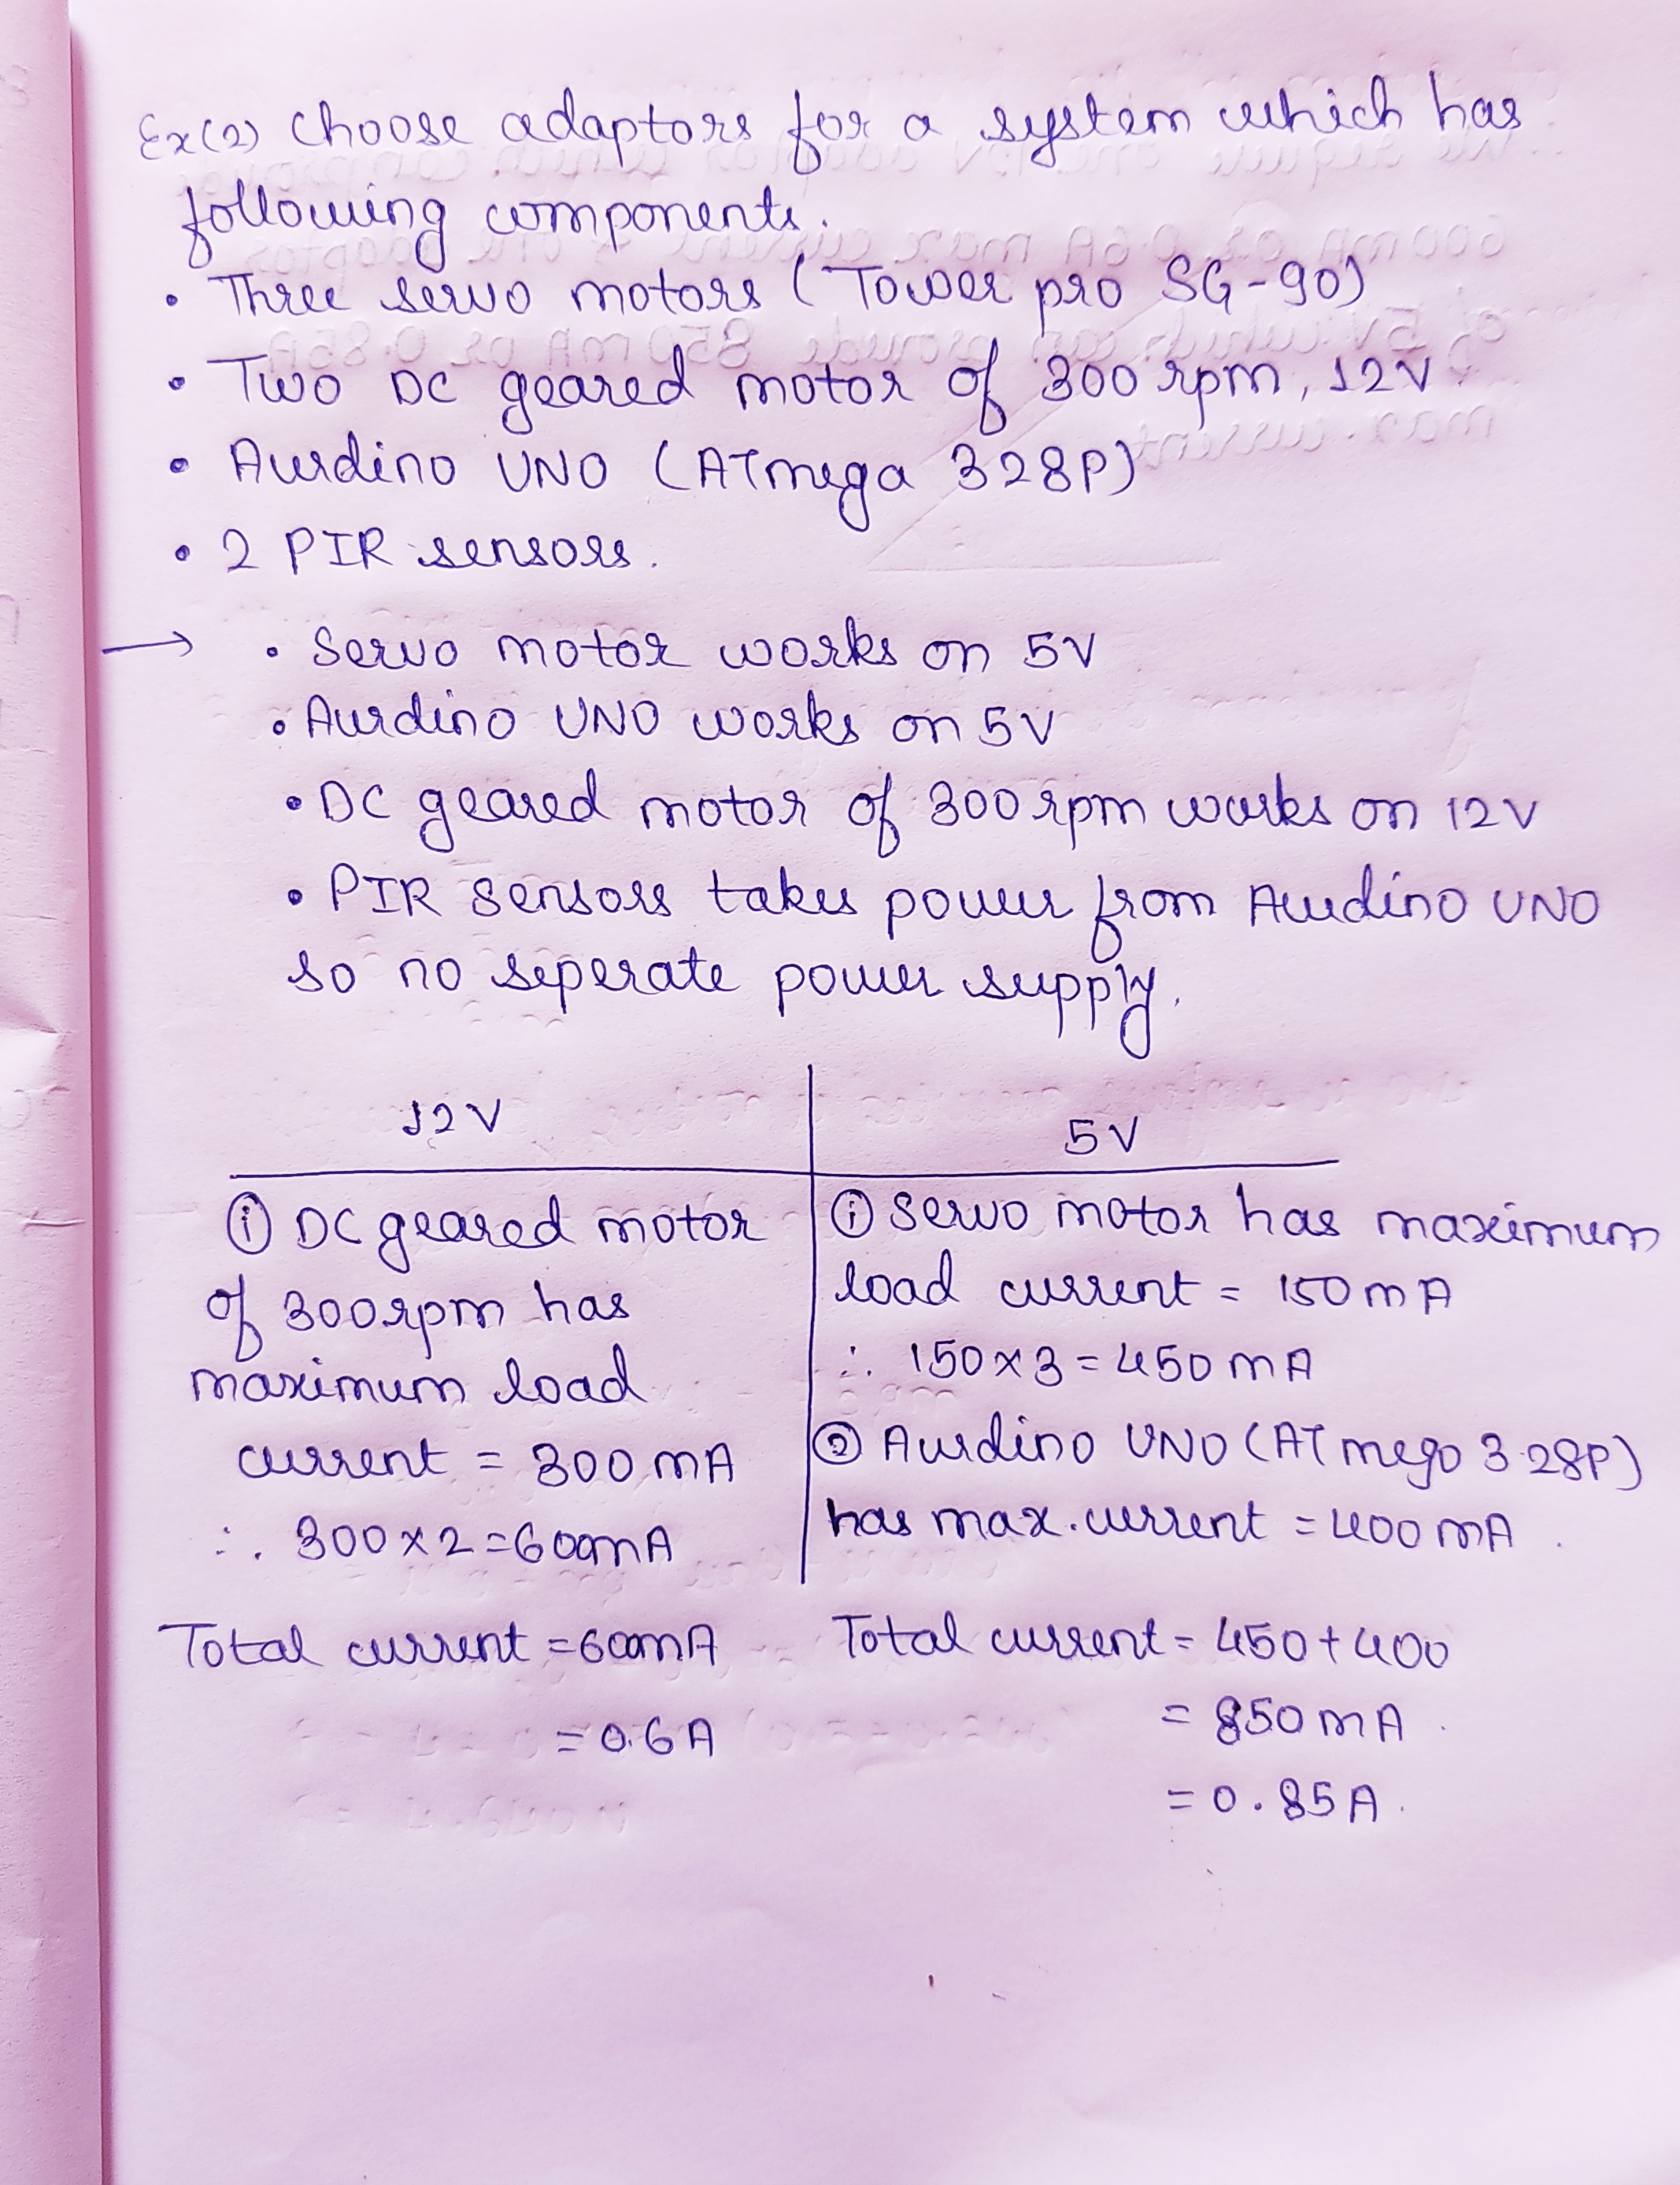 Ex(2) Choose adaptors for a system which has
following components.
• Three servo motors (Tower pro SG-90)
• Two DC geared motor of 300 rpm, 12V
• Aurdino UNO (ATmega 328P)
• 2 PIR sensors.
→ • Servo motor works on 5V
• Aurdino UNO works on 5V
• DC geared motor of 300 rpm works on 12V
• PIR sensors takes power from Aurdino UNO
so no seperate power supply.
12V
① DC geared motor
of 300rpm has
maximum load
current = 300 mA
∴ 300 x 2 = 600mA
Total current = 600mA
= 0.6A
5V
① Servo motor has maximum
load current = 150 mA
∴ 150 x 3 = 450 mA
② Aurdino UNO (ATmega 328P)
has max. current = 400 mA.
Total current = 450 + 400
= 850 mA.
= 0.85A.